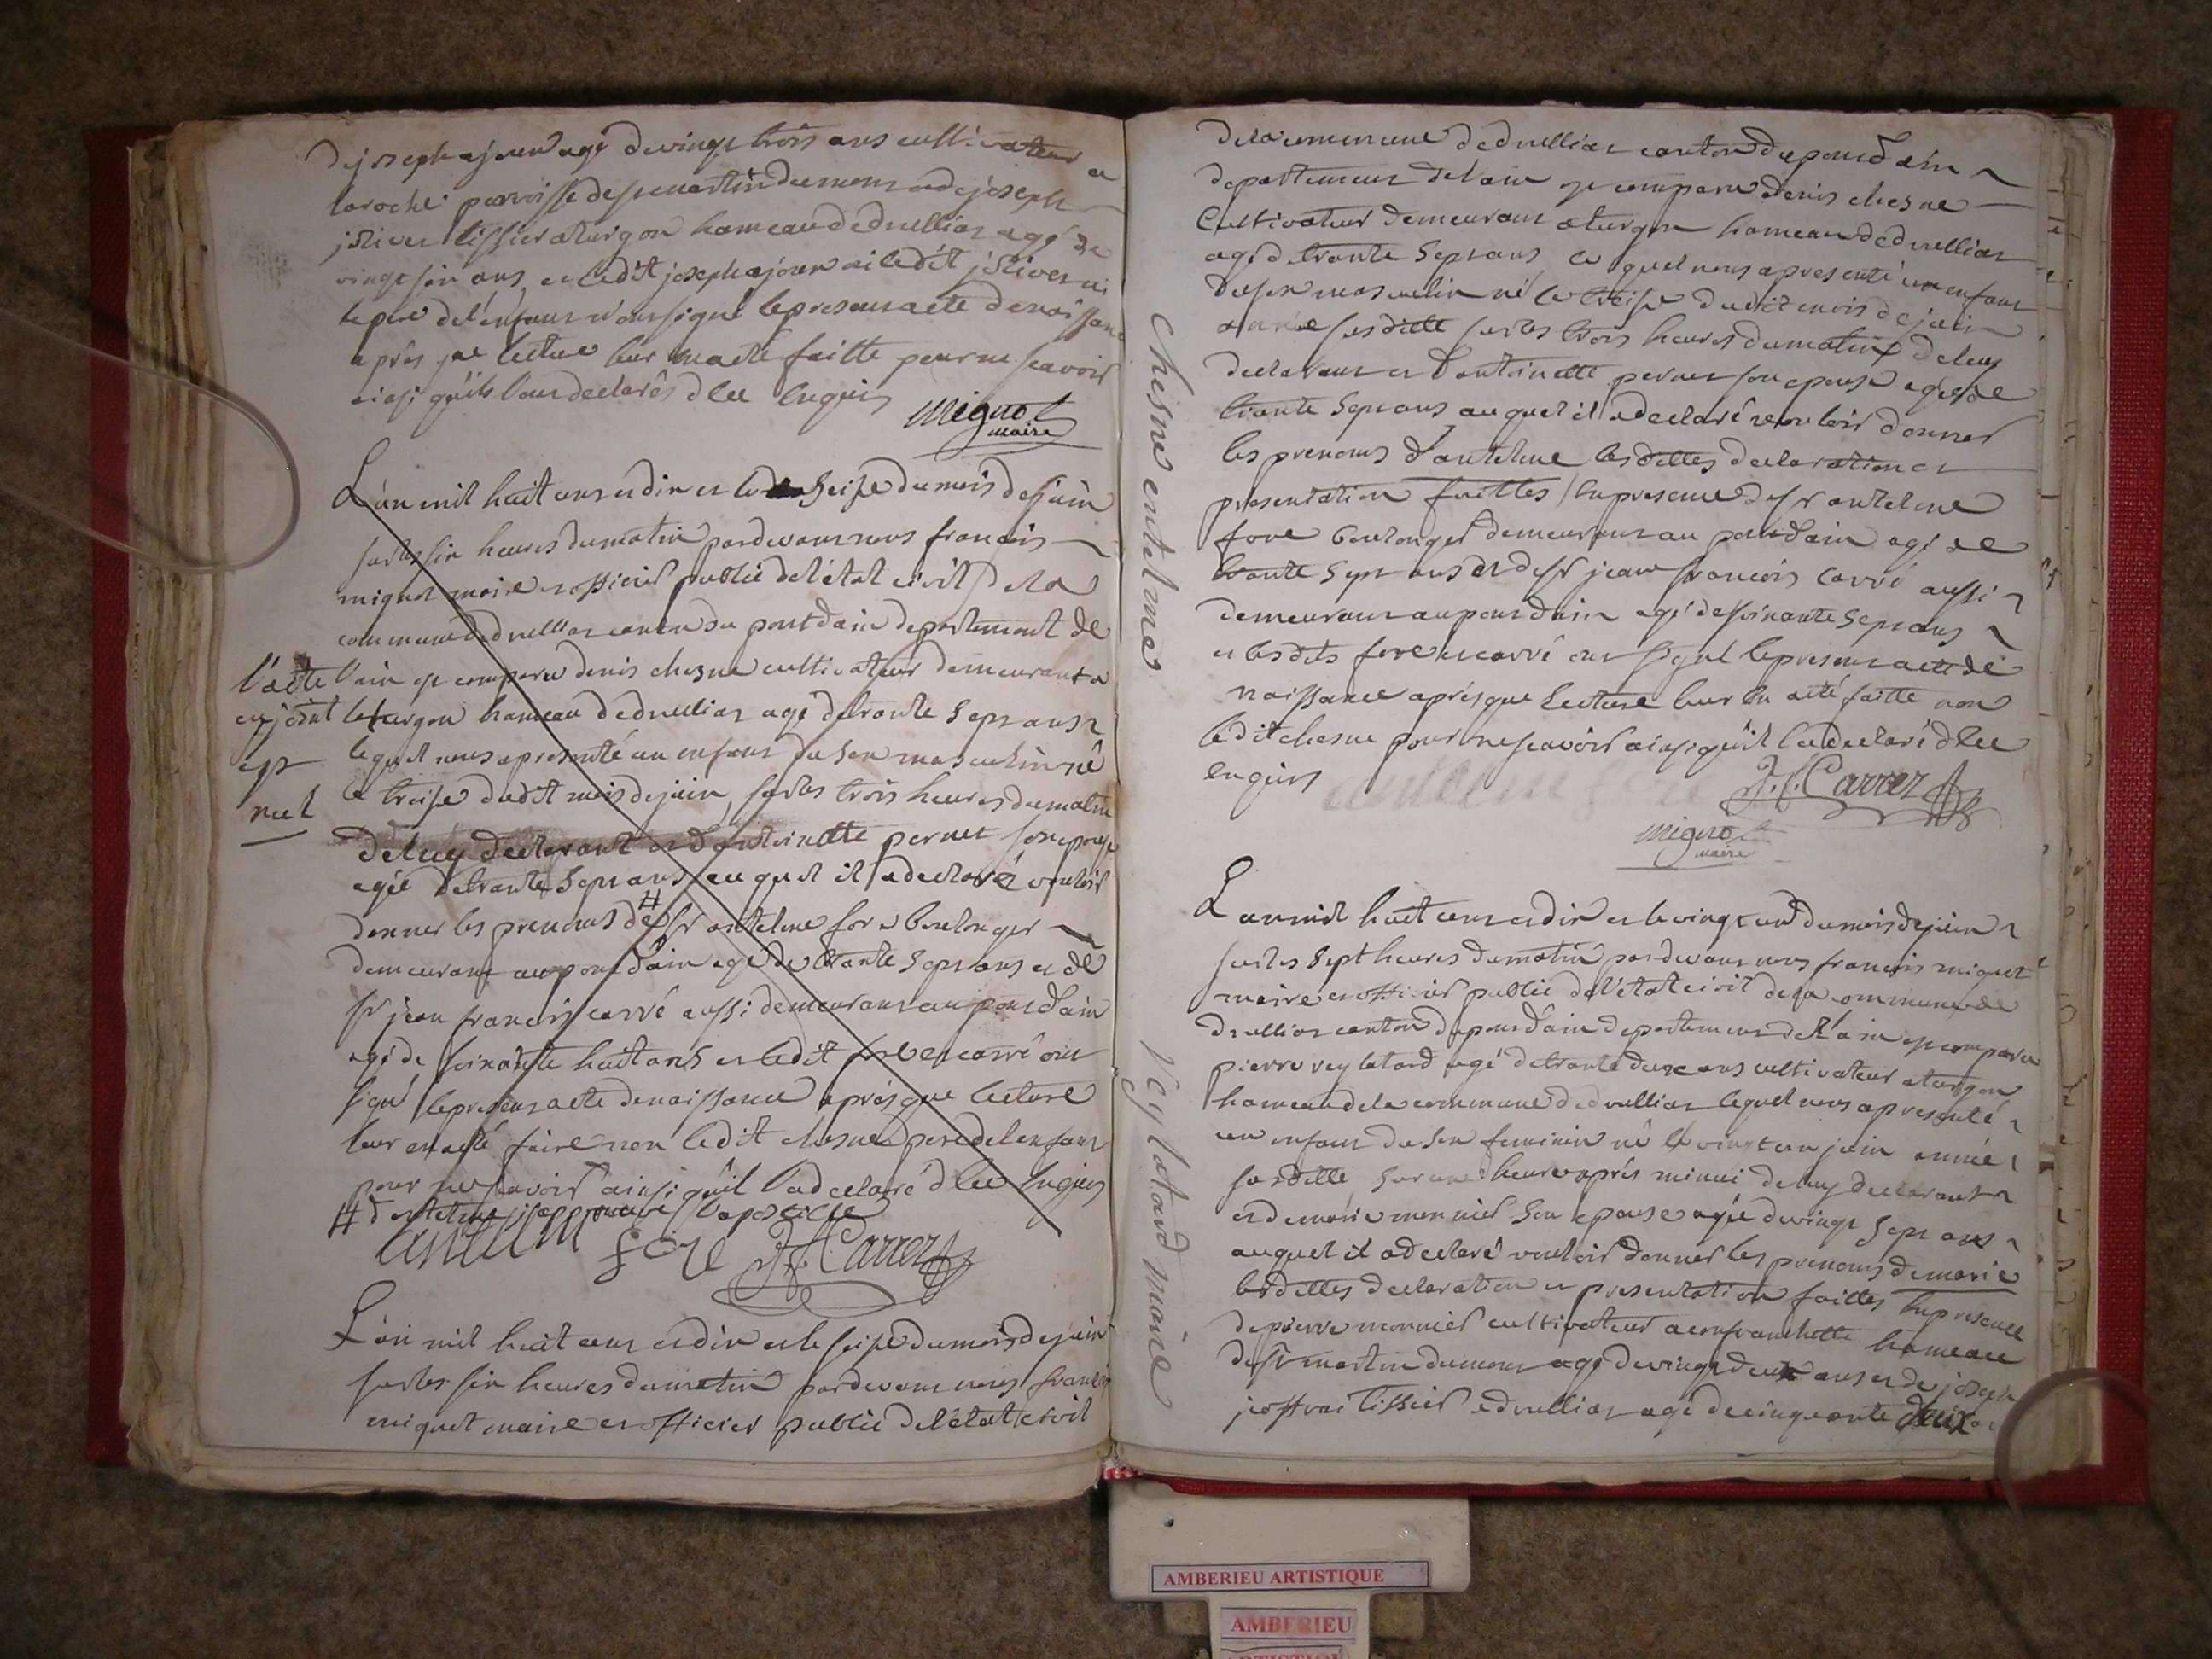 de joseph ajoux agé de vingt trois ans cultivateur a
laroche parroisse de st martin du mont et de joseph
tissier a turgon hameau de druillias agé de
vingt six ans et ledit joseph ajoux ni ledit ni
le pere de l'enfant n'ont signé le present acte de naissance
après que lecture leur en a eté faitte pour ne scavoir
ainsi qu'ils l'ont declarés de ce enquis
miguet
maire
L'an mil huit cens et dix et le seise du mois de juin
sur les six heures du matin pardevant nous francois
miguet maire et officier public de l'état civil de la
commune de druillias canton du pont dain departement de
l'acte
cy joint
est
nul
l'ain est comparu denis chesne cultivateur demeurant a
turgon hameau de druillias agé de trante sept ans
lequel nous a presenté un enfant du sex masculin né
le treise dudit mois de juin sur les trois heures du matin
de luy declarant et d'antoinette pernet son epouse
agée de trante sept ans auquel il a declaré vouloir
donner les prenoms de # sr antelme fore boulonger
demeurant au pont d'ain agé de trante sept ans et de
sr jean francois carré aussi demeurant au pont d'ain
agé de soixante huit ans et ledit fore et carré ont
signé le present acte de naissance après que lecture
leur en a eté faite non ledit chesne pere de l'enfant
pour ne scavoir ainsi qu'il l'a declaré de ce enquis
# d'antelme approuvé l'apostille
antelm fore J. f. Carrez
L'an mil huit cens et dix et le seise du mois de juin
sur les six heures du matin pardevant nous francois
miguet maire et officier public de l'état civil
chesne entelme
veylatard marie
de la commune de druillias canton du pont d'ain
departement de l'ain est comparu denis chesne
Cultivateur demeurant a turgon hameau de druillias
agé de trante sept ans lequel nous a presenté un enfant
du sex masculin né le treise dudit mois de juin
année susditte sur les trois heures du matin de luy
declarant et d'antoinette pernet son epouse agée de
trante sept ans auquel il a declaré vouloir donner
les prenoms d'antelme lesdittes declaration et
presentation faittes en presence de sr antelme
fore boulonger demeurant au pont d'ain agé de
trante sept ans et de sr jean francois carré aussi
demeurant au pont d'ain agé de soixante sept ans
et lesdits fore et carré ont signé le present acte de
naissance après que lecture leur en a eté faitte non
ledit chesne pour ne scavoir ainsi qu'il l'a declaré de ce
enquis
J. f. Carrez
miguet
maire
L'an mil huit cens et dix et le vingt un du mois de juin
sur les sept heures du matin pardevant nous francois miguet
maire et officier public de l'état civil de la commune de
druillias canton du pont d'ain departement de l'ain est comparu
pierre veylatard agé de trante deux ans cultivateur a turgon
hameau de la commune de druillias lequel nous a presenté
un enfant du sex feminin né le vingt un juin année
susditte sur une heure après minui de luy declarant
et de marie monnier son epouse agée de vingt sept ans
auquel il a declaré vouloir donner les prenoms de marie
lesdittes declaration et presentation faittes en presence
de pierre monnier cultivateur a confranchette hameau
de st martin du mont agé de vingt deux ans et de joseph
tissier a druillias agé de cinquante deux
AMBERIEU ARTISTIQUE
AMBERIEU